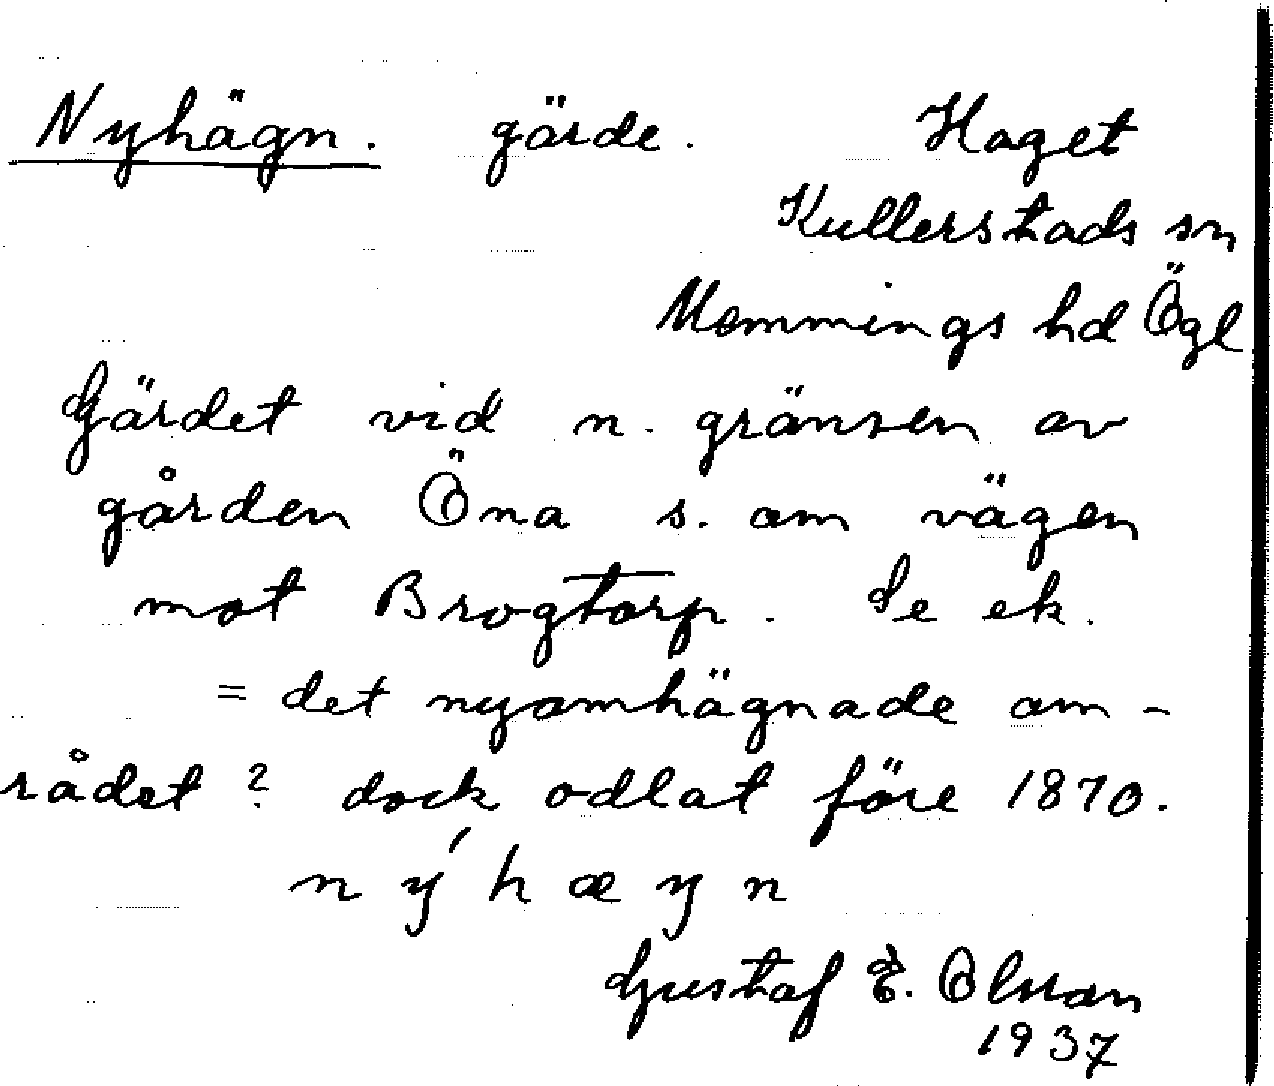 Nyhägn. gärde. Haget
Kullerstads sn
Memmings hd Ögl
Gärdet vid n. gränsen av
gården Öna s. om vägen
mot Brogtorp. Se ek.
= det nyomhägnade om-
rådet? dock odlat före 1870.
n ý h æ ŋ n
Gustaf E. Olsson
1937